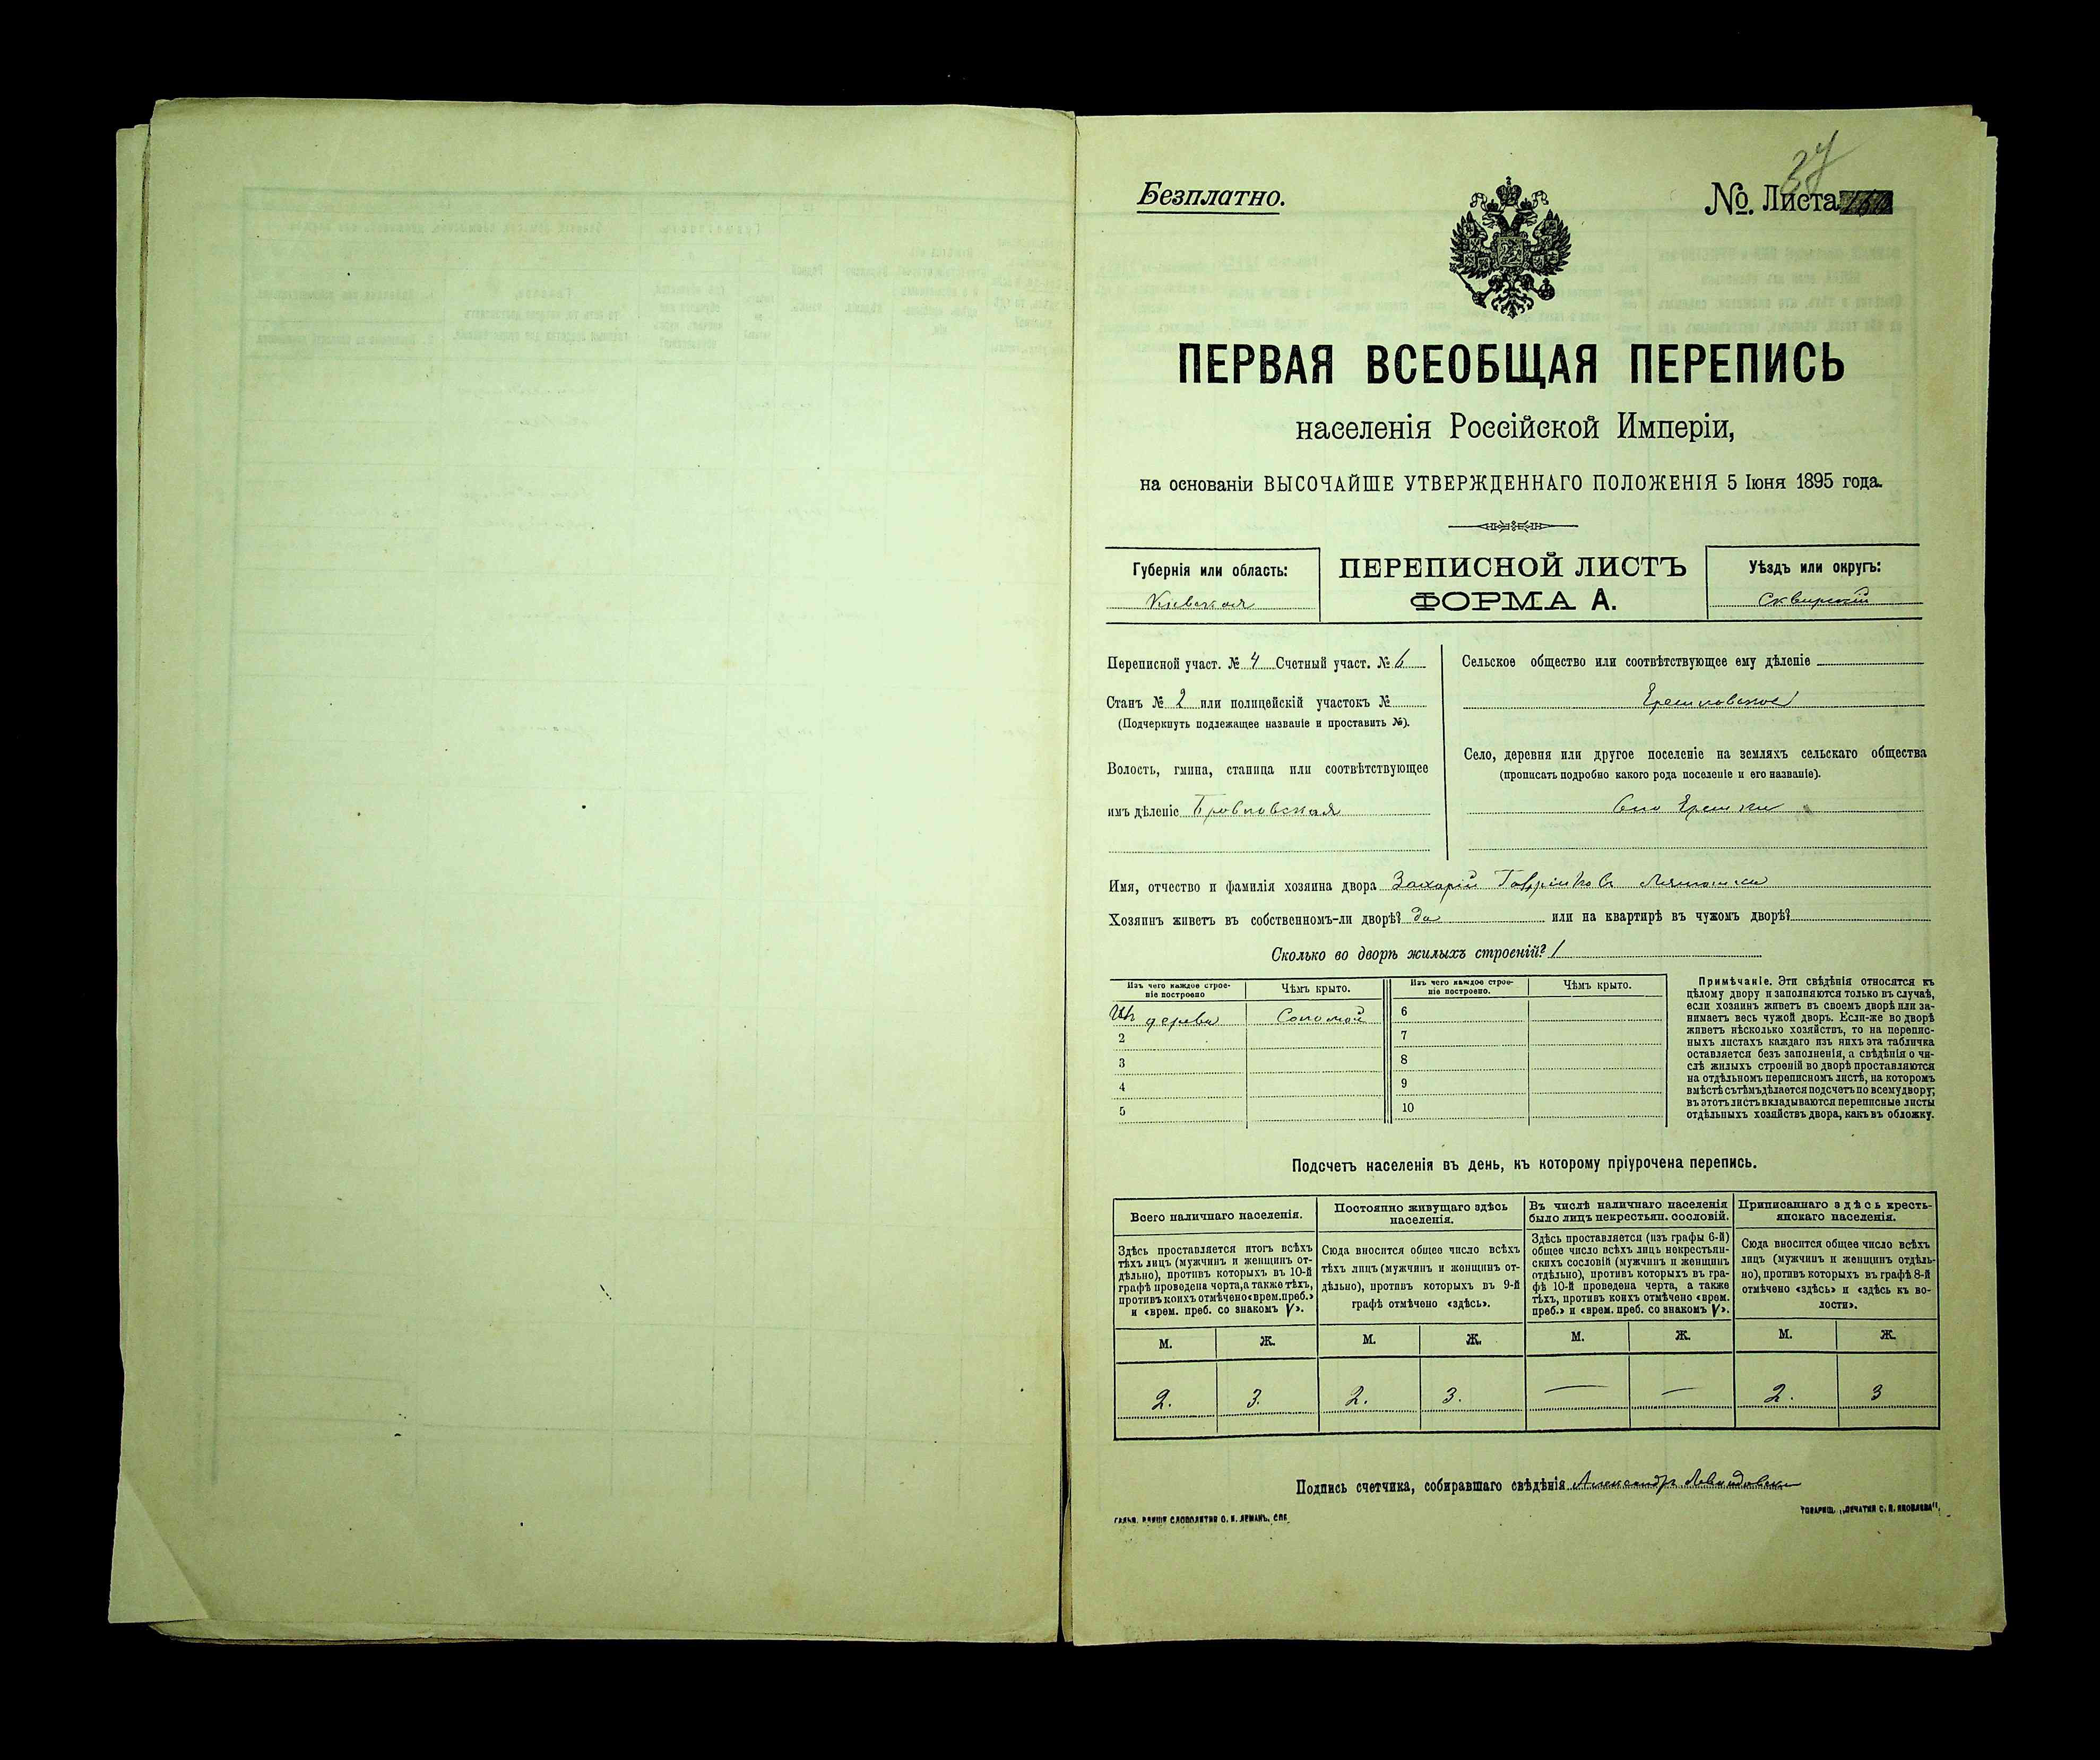 37
Безплатно.
№. Листа
ПЕРВАЯ ВСЕОБЩАЯ ПЕРЕПИСЬ
населенія Россійской Имперіи,
на основаніи ВЫСОЧАЙШЕ УТВЕРЖДЕННАГО ПОЛОЖЕНІЯ 5 Іюня 1895 года.
Губернія или область:
Кіевская
ПЕРЕПИСНОЙ ЛИСТЪ
ФОРМА А.
Уѣздъ или округъ:
Сквирскій
Переписной участ. № 4 Счетный участ. № 6
Станъ № 2 или полицейскій участокъ №
(Подчеркнуть подлежащее названіе и проставить №).
Волость, гмина, станица или соотвѣтствующее
имъ дѣленіе
Сельское общество или соотвѣтствующее ему дѣленіе
Ерешковское
Село, деревня или другое поселеніе на земляхъ сельскаго общества
(прописать подробно какого рода поселеніе и его названіе).
Село Ерешки
Имя, отчество и фамилія хозяина двора Захарій
Хозяинъ живетъ въ собственномъ-ли дворѣ? да или на квартирѣ въ чужомъ дворѣ?
Сколько во дворѣ жилыхъ строеній? 1
Изъ чего каждое строе-
ніе построено
Чѣмъ крыто.
Изъ чего каждое строе-
ніе построено.
Чѣмъ крыто.
Изъ дерева Соломой 6
2 7
3 8
4 9
5 10
Примѣчаніе. Эти свѣдѣнія относятся къ
цѣлому двору и заполняются только въ случаѣ,
если хозяинъ живетъ въ своемъ дворѣ или за-
нимаетъ весь чужой дворъ. Если-же во дворѣ
живетъ нѣсколько хозяйствъ, то на перепис-
ныхъ листахъ каждаго изъ нихъ эта табличка
оставляется безъ заполненія, а свѣдѣнія о чи-
слѣ жилыхъ строеній во дворѣ проставляются
на отдѣльномъ переписномъ листѣ, на которомъ
вмѣстѣ съ тѣмъ дѣлается подсчетъ по всему двору;
въ этотъ листъ вкладываются переписные листы
отдѣльныхъ хозяйствъ двора, какъ въ обложку.
Подсчетъ населенія въ день, къ которому пріурочена перепись.
Всего наличнаго населенія.
Здѣсь проставляется итогъ всѣхъ
тѣхъ лицъ (мужчинъ и женщинъ от-
дѣльно), противъ которыхъ въ 10-й
графѣ проведена черта, а также тѣхъ,
противъ коихъ отмѣчено «врем. преб.»
и «врем. преб. со знакомъ V».
Постоянно живущаго здѣсь
населенія.
Сюда вносится общее число всѣхъ
тѣхъ лицъ (мужчинъ и женщинъ от-
дѣльно), противъ которыхъ въ 9-й
графѣ отмѣчено «здѣсь».
Въ числѣ наличнаго населенія
было лицъ некрестьян. сословій.
Здѣсь проставляется (изъ графы 6-й)
общее число всѣхъ лицъ некрестьян-
скихъ сословій (мужчинъ и женщинъ
отдѣльно), противъ которыхъ въ гра-
фѣ 10-й проведена черта, а также
тѣхъ, противъ коихъ отмѣчено «врем.
преб.» и «врем. преб. со знакомъ V».
Приписаннаго здѣсь кресть-
янскаго населенія.
Сюда вносится общее число всѣхъ
лицъ (мужчинъ и женщинъ отдѣль-
но), противъ которыхъ въ графѣ 8-й
отмѣчено «здѣсь» и «здѣсь къ во-
лости».
М. Ж. М. Ж. М. Ж. М. Ж.
2. 3. 2. 3. — — 2. 3
Подпись счетчика, собиравшаго свѣдѣнія Александръ
ТОВАРИЩ. „ПЕЧАТНЯ С. П. ЯКОВЛЕВА".